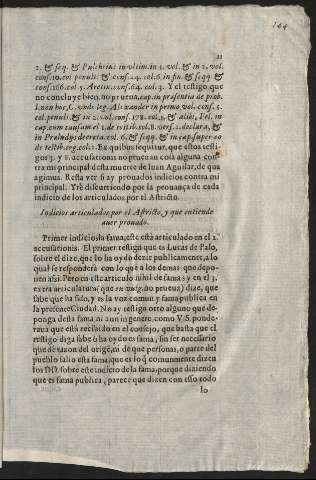 144
11
2. & seq. & Pulchrine in vltim. in 3. vol. & in 2. vol.
cons. 10. col penult. & cons. 24. col. 6 in fin. & seqq &
cons. 166. col 5. Aretin. cons. 64. col. 3. Y el testigo que
no concluye bien, no prueua, cap. in præsentia de prob.
l. non hoc, C. vnde leg. Alexander in primo vol. cons. 5.
col. penult & in 2. vol. cons. 178. col. & alibi, Fel. in
cap. cum causam el 1. de testib. col. 8. vers. 2. declara, &
in Præludijs decreta. col. 6. & seqq. & in cap. super eo
de testib. org. col. 1. Ex quibus sequitur, que estos testi-
gos 3. y 8. accusationis no prueuan cosa alguna con-
tra mi principal desta muerte de Iuan Aguilar, de qua
agimus. Resta ver si ay prouados indicios contra mi
principal. Yrè discurriendo por la prouança de cada
indicio de los articulados por el Astricto.
Indicios articulados por el Astricto, y que entiende
auer prouado.
Primer indicio, la fama, este està articulado en el 2.
accusationis. El primer testigo que es Lucas de Palo,
sobre el dize, que lo ha oydo dezir publicamente, a lo
qual se responderà con lo que a los demas que depo-
nen assi. Pero en este articulo
extra articularum que
sabe que ha sido, y es la voz comun y fama publica en
la presente Ciudad. No ay testigo otro alguno que de-
ponga desta fama ni aun in genere, como V. S. ponde-
rarà que està recibido en el consejo, que basta que el
testigo diga sabe ò ha oydo es fama, sin ser necessario
que dè razon del origē, ni de que personas, o parte del
pueblo salio esta fama, que es lo q̃ comunmente dizen
los DD. sobre este indicio de la fama, porque diziendo
que es fama publica, parece que dizen con esso todo
lo